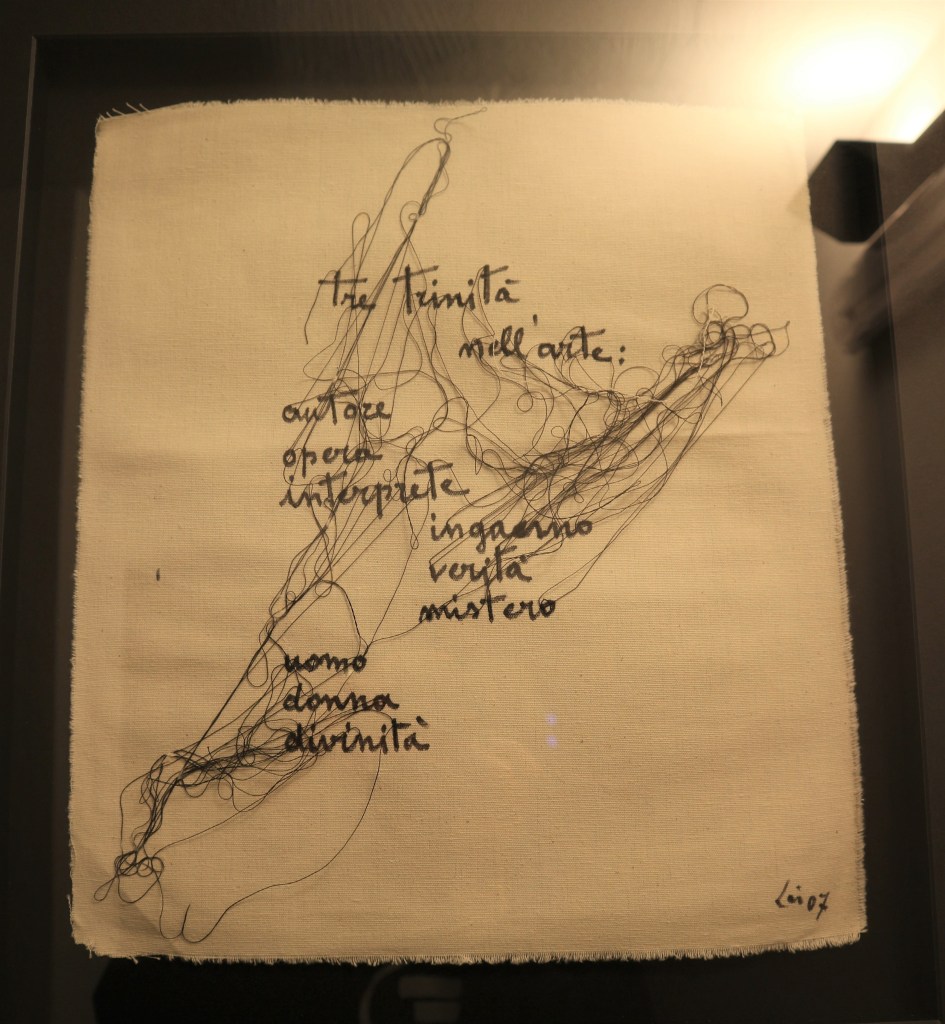 tre trinità
nell'arte:
autore
opera
interprete
ingaerno
verità
mistero
uomo
donna
divinità
Lai 07